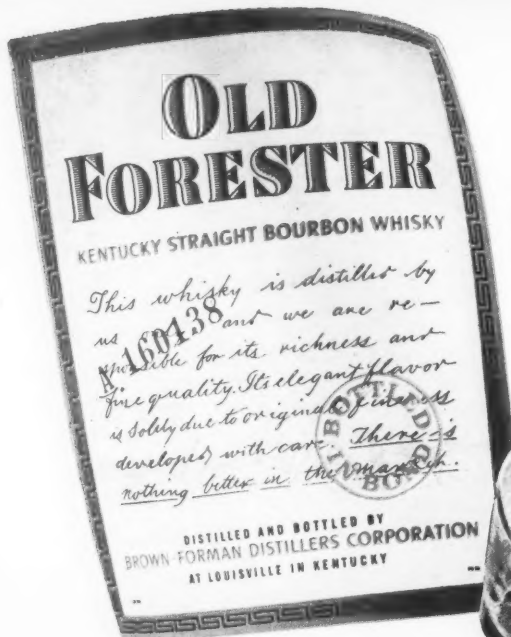 OLD
FORESTER
KENTUCKY STRAIGHT BOURBON WHISKY
This whisky is distilled by
us and we are re-
sponsible for its richness and
fine quality. Its elegant flavor
is solely due to original fineness
developed with care. There is
nothing better in the market.
A 160138
BOTTLED
IN BOND
DISTILLED AND BOTTLED BY
BROWN-FORMAN DISTILLERS CORPORATION
AT LOUISVILLE IN KENTUCKY